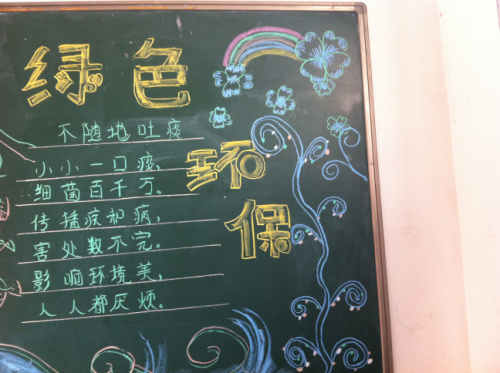 绿色
环
保
不随地吐痰
小小一口痰,
细菌百千万。
传播疾和病,
害处数不完。
影响环境美,
人人都厌烦。